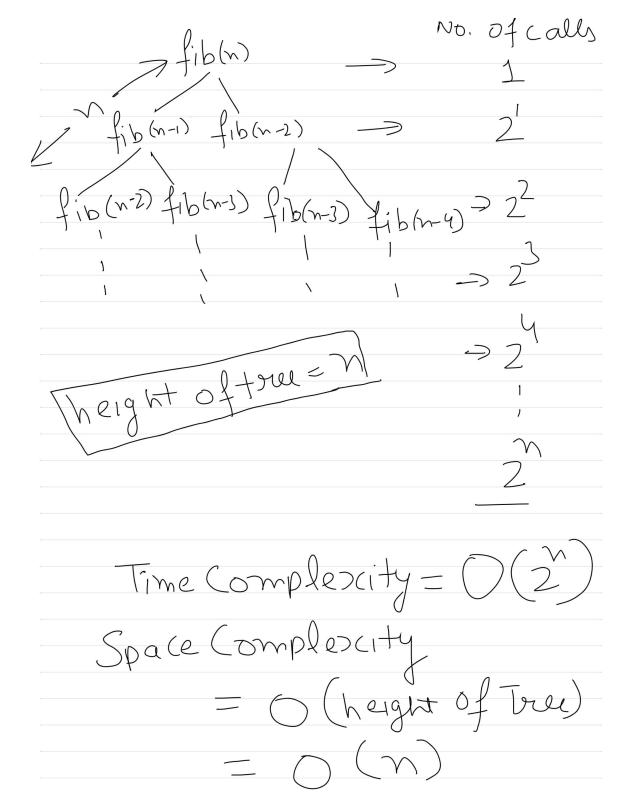 No. of calls
fib(n) → 1
n
fib(n-1) fib(n-2) → 2^1
fib(n-2) fib(n-3) fib(n-3) fib(n-4) → 2^2
→ 2^3
→ 2^4
height of tree = n
2^n
Time Complexity = O(2^n)
Space Complexity
= O(height of Tree)
= O(n)